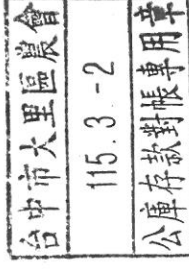 台中市大里區農會
115.3.-2
公庫存款對帳專用章